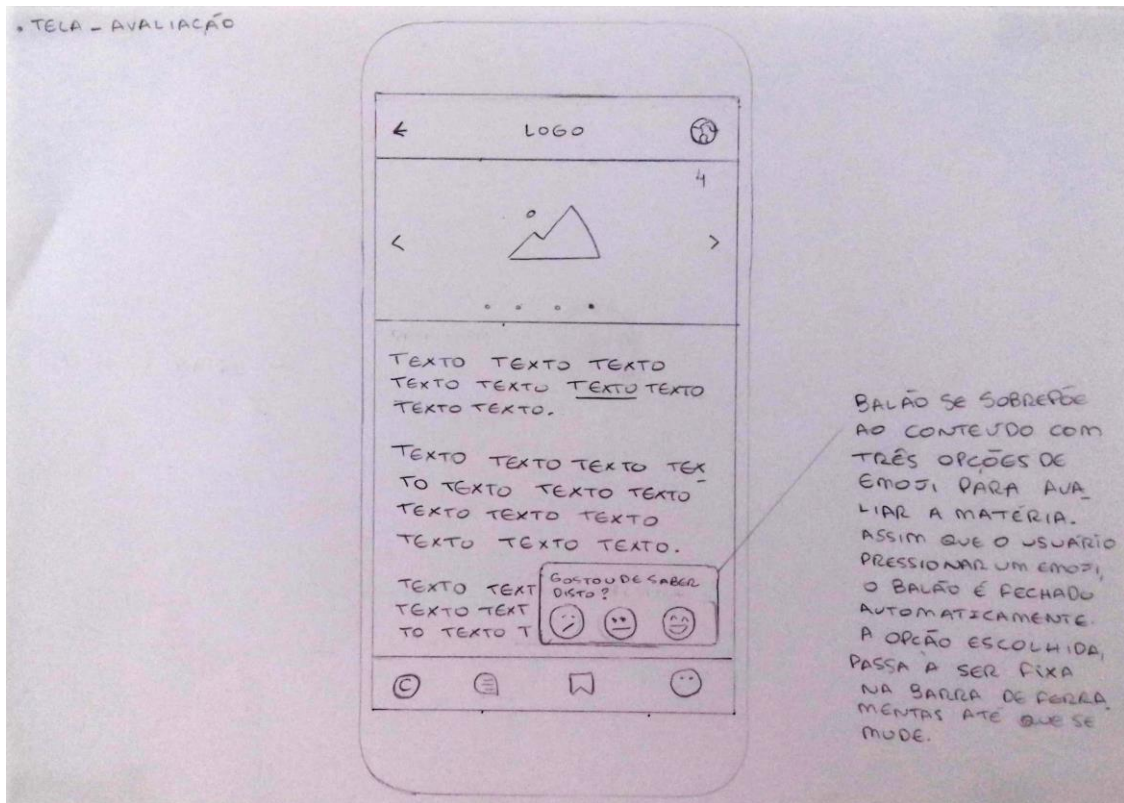 . TELA - AVALIAÇÃO
LOGO
4
TEXTO TEXTO TEXTO
TEXTO TEXTO TEXTO TEXTO
TEXTO TEXTO.
TEXTO TEXTO TEXTO TEX
TO TEXTO TEXTO TEXTO
TEXTO TEXTO TEXTO
TEXTO TEXTO TEXTO.
TEXTO TEXT
TEXTO TEXT
TO TEXTO T
GOSTOU DE SABER
DISTO?
C
BALÃO SE SOBREPÕE
AO CONTEUDO COM
TRÊS OPÇÕES DE
EMOJI PARA AVA_
LIAR A MATÉRIA.
ASSIM QUE O USUÁRIO
PRESSIONAR UM EMOJI,
O BALÃO É FECHADO
AUTOMATICAMENTE.
A OPÇÃO ESCOLHIDA,
PASSA A SER FIXA
NA BARRA DE FERRA_
MENTAS ATÉ QUE SE
MUDE.